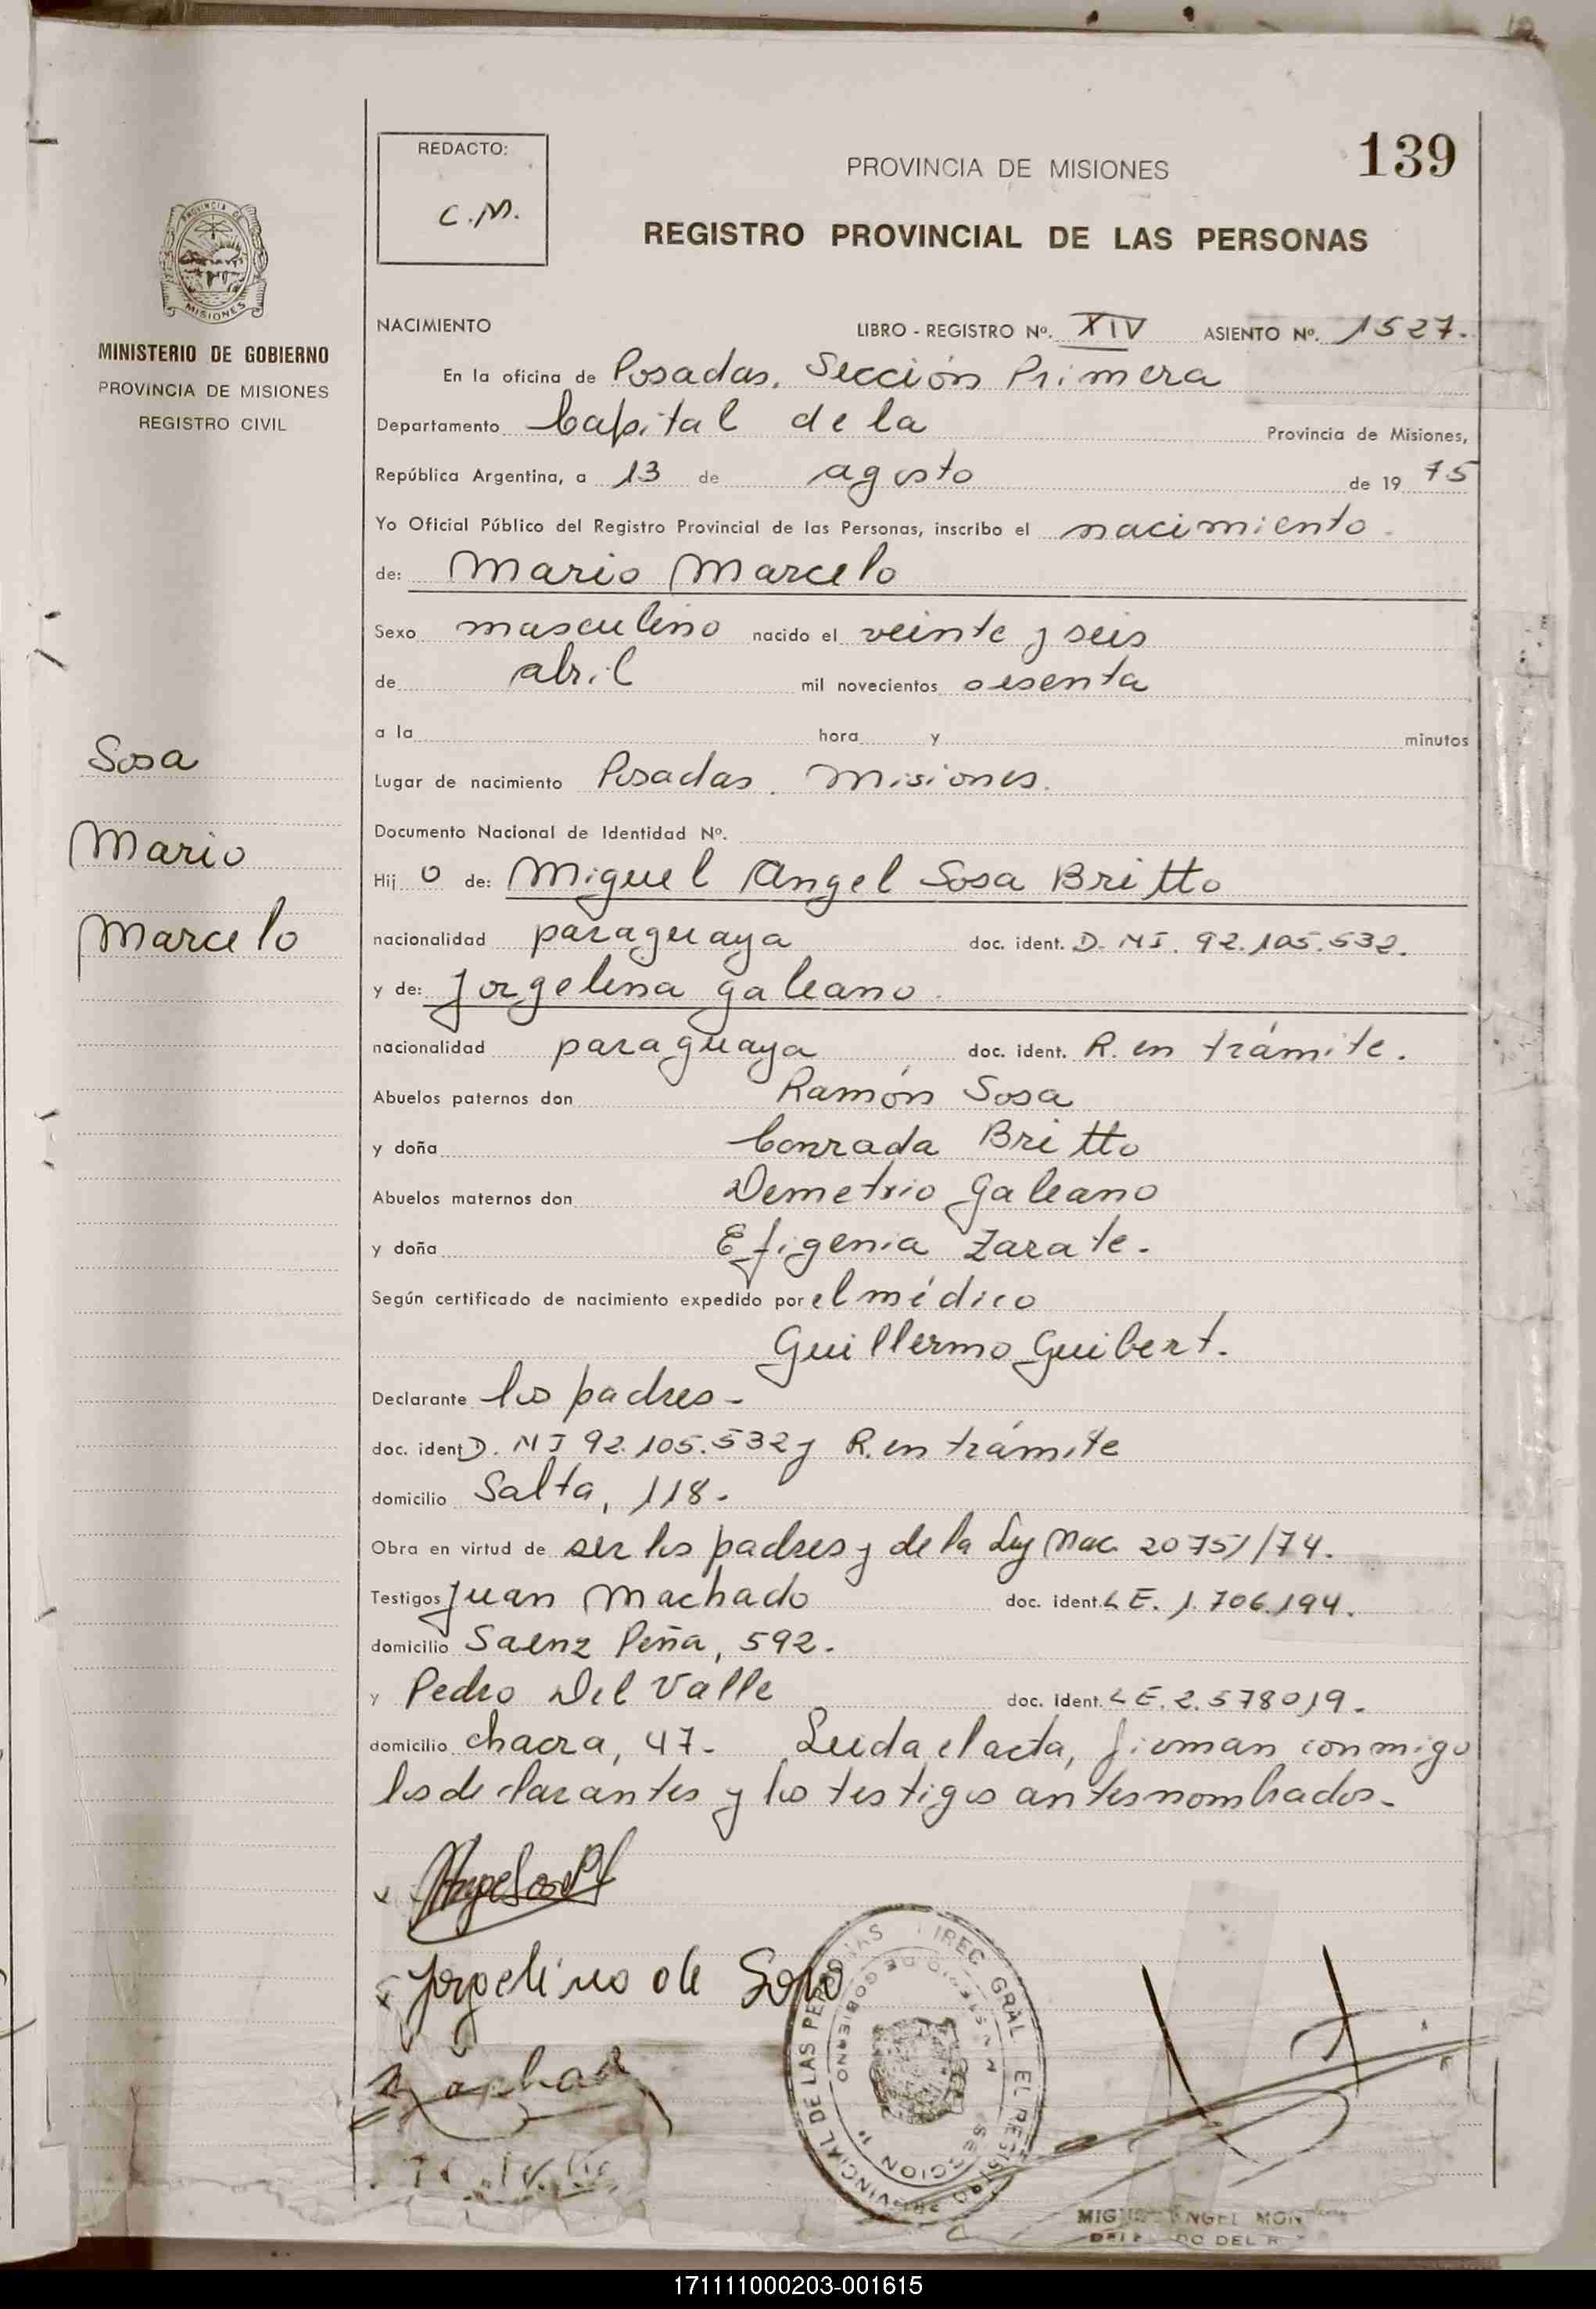 139
REDACTO:
C.M.
PROVINCIA DE MISIONES
REGISTRO PROVINCIAL DE LAS PERSONAS
PROVINCIA DE
MISIONES
MINISTERIO DE GOBIERNO
PROVINCIA DE MISIONES
REGISTRO CIVIL
Sosa
Mario
Marcelo
NACIMIENTO LIBRO - REGISTRO Nº. XIV ASIENTO Nº. 1527.
En la oficina de Posadas. Sección Primera
Departamento Capital de la Provincia de Misiones,
República Argentina, a 13 de agosto de 19 75
Yo Oficial Público del Registro Provincial de las Personas, inscribo el nacimiento
de: Mario Marcelo
Sexo masculino nacido el veinte y seis
de abril mil novecientos sesenta
a la hora y minutos
Lugar de nacimiento Posadas. Misiones.
Documento Nacional de Identidad Nº.
Hij o de: Miguel Angel Sosa Britto
nacionalidad paraguaya doc. ident. D. NI. 92.105.532.
y de: Jorgelina Galeano.
nacionalidad paraguaya doc. ident. R. en trámite.
Abuelos paternos don Ramón Sosa
y doña Conrada Britto
Abuelos maternos don Demetrio Galeano
y doña Efigenia Zarate.
Según certificado de nacimiento expedido por el médico
Guillermo Guibert.
Declarante los padres-
doc. ident D. NI 92.105.532 y R. en trámite
domicilio Salta, 118.
Obra en virtud de ser los padres y de la Ley Nac. 20751/74.
Testigos Juan Machado doc. ident. LE. 1.706.194.
domicilio Saenz Peña, 592.
y Pedro Del Valle doc. ident. LE. 2.578019.
domicilio chacra, 47- Leida el acta, firman conmigo
los declarantes y los testigos antes nombrados-
Jorgelina de Sosa
DIREC GRAL EL REGISTRO PROVINCIAL DE LAS PERSONAS
MINISTERIO DE GOBIERNO
SECCION 1ª
MIGUEL ANGEL
171111000203-001615